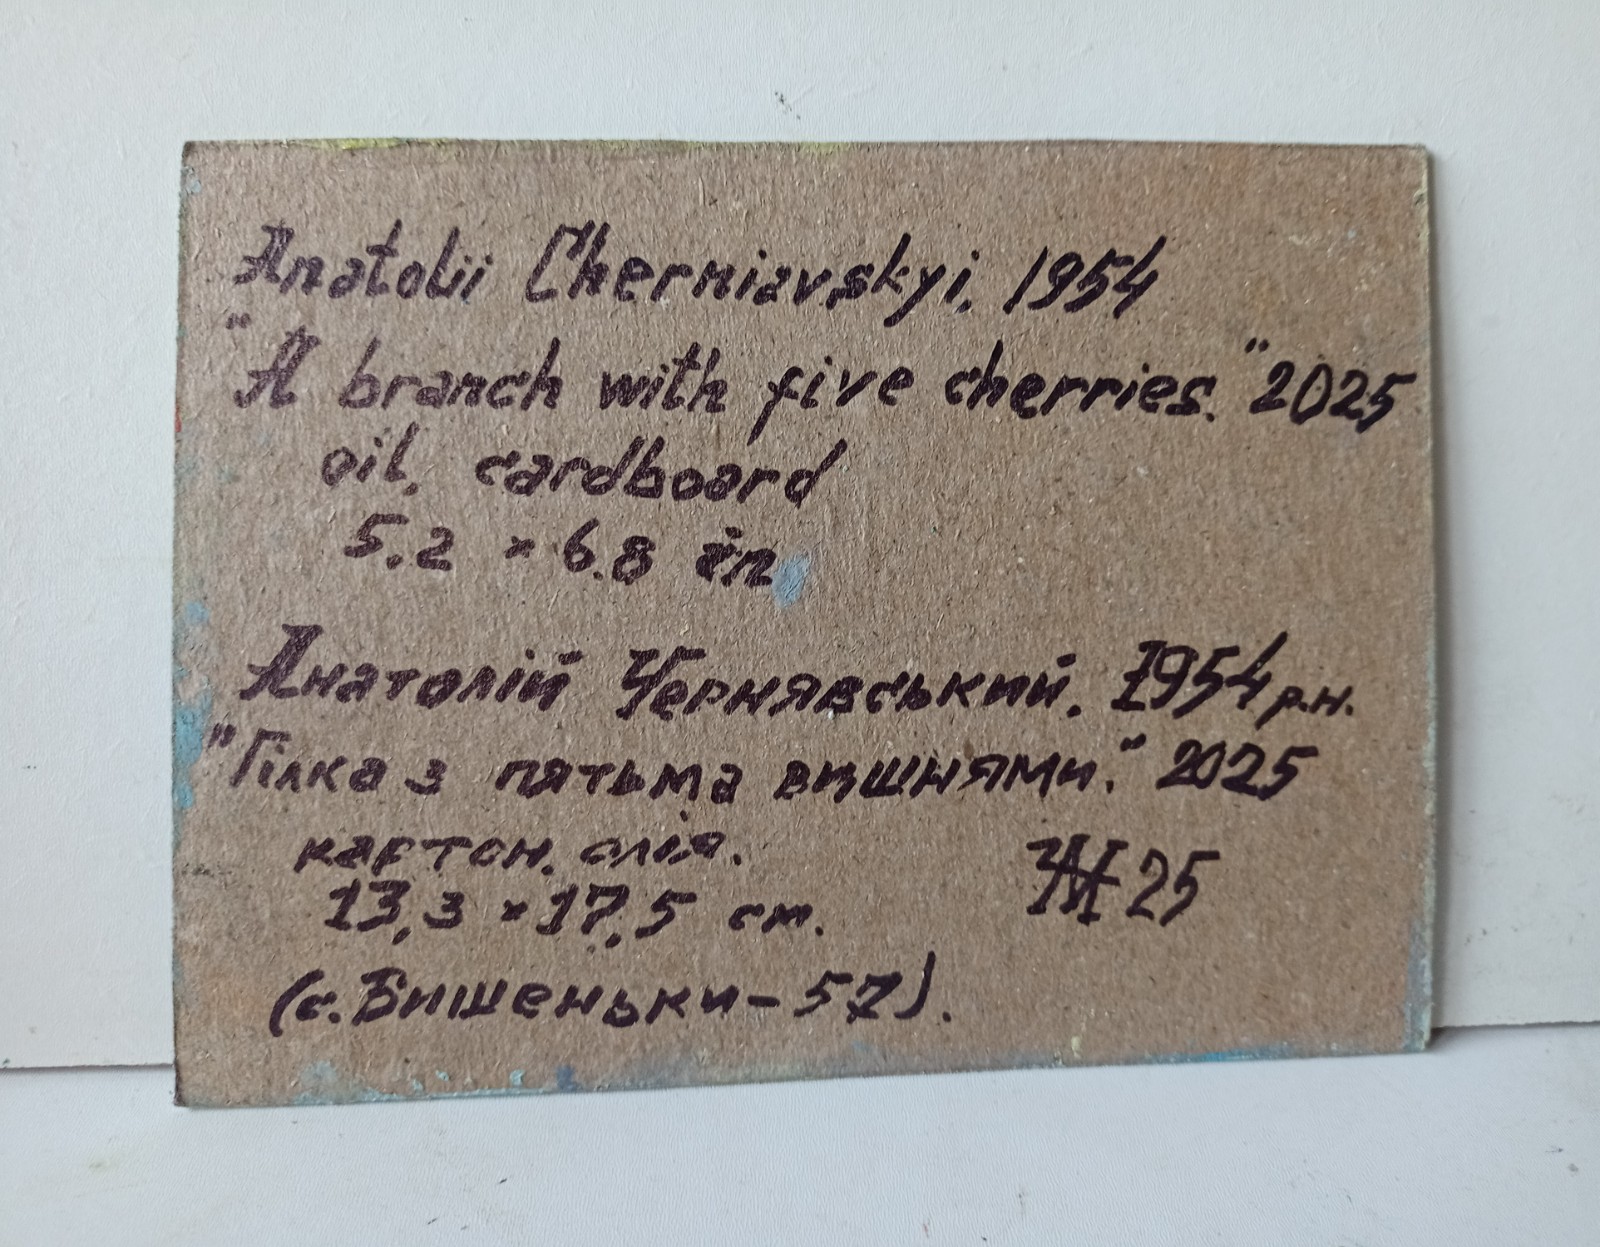 Anatolii Cherniavskyi. 1954
"A branch with five cherries." 2025
oil. cardboard
5.2 × 6.8 in
Анатолій Чернявський. 1954 р.н.
"Гілка з пятьма вишнями." 2025
картон. олія.
13,3 × 17,5 cm.
25
(с. Вишеньки - 57).